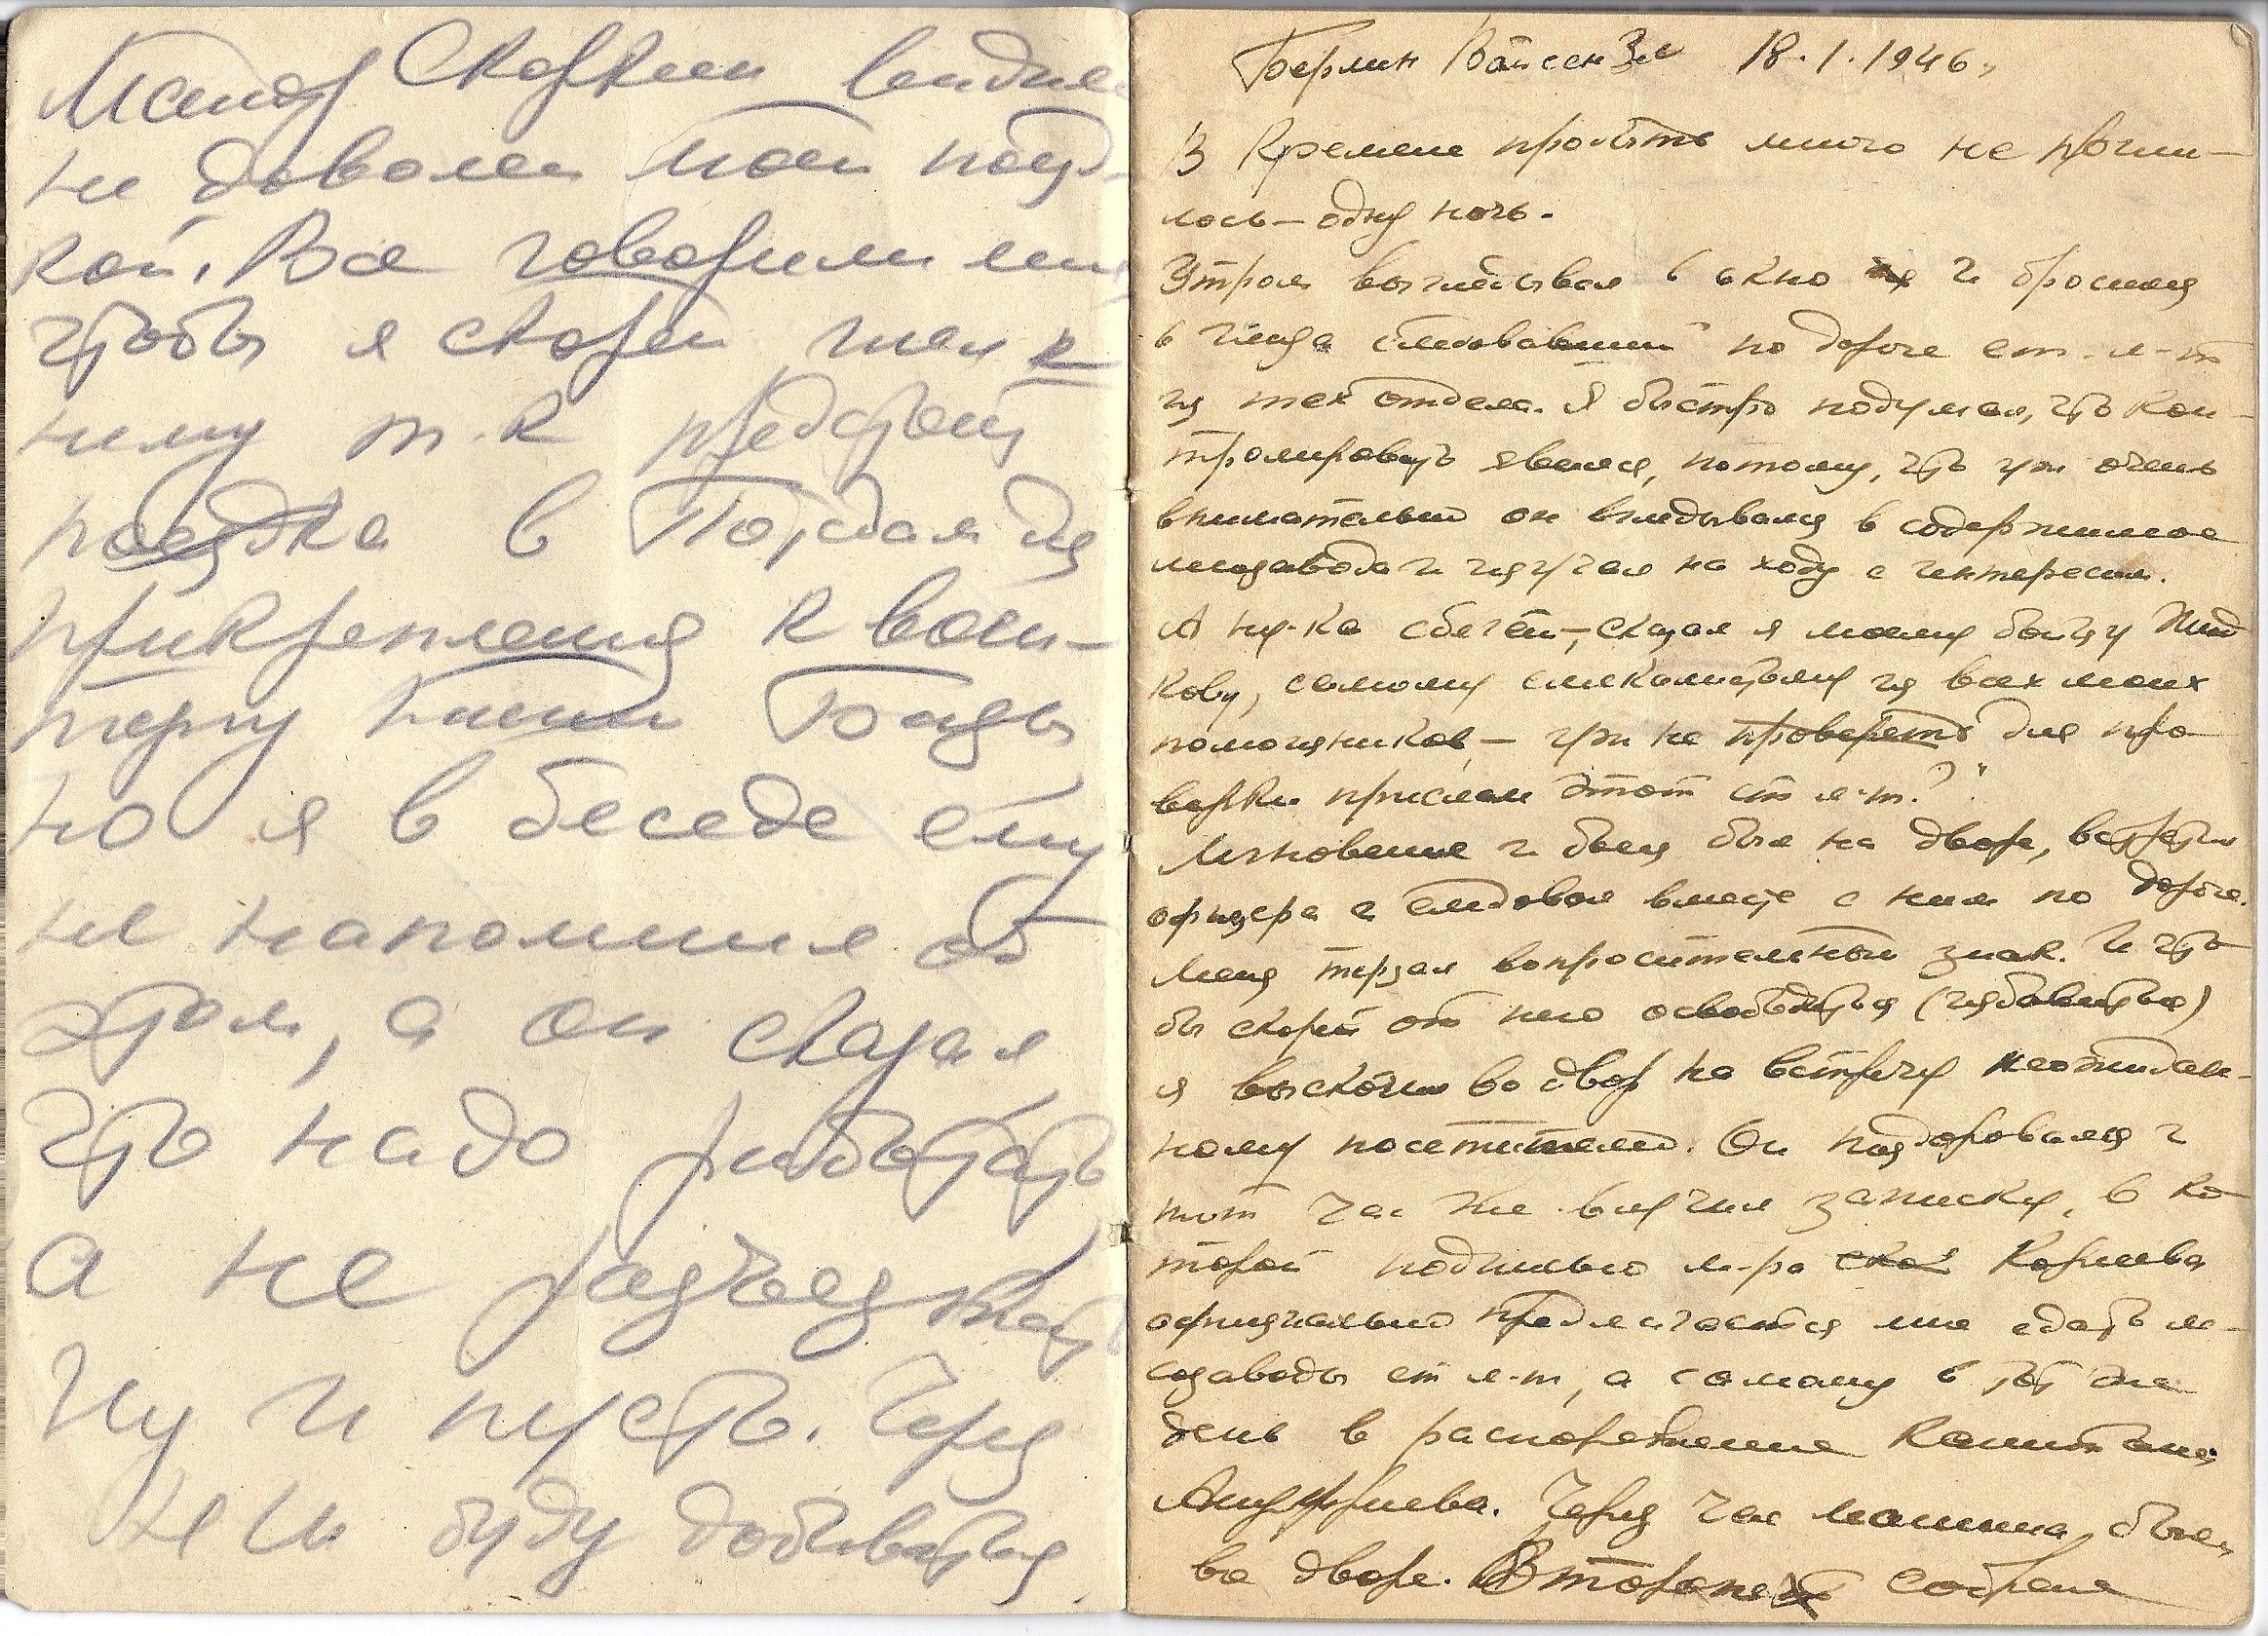 Майор Скоркин видимо
не доволен моей поезд-
кой. Все говорили мне
чтобы я скорей шел к
нему т.к предстоит
поездка в Потсдам для
прикрепления к воен-
торгу нашей Базы
но я в беседе ему
не напомнил об
этом, а он сказал
что надо работать
а не разъезжать
Ну и пусть. Через
не и буду добиваться
Берлин Вайсензее 18.1.1946г
В Кремене пробыть много не приш-
лось – одну ночь.
Утром выглядывал в окно и бросился
в глаза следовавший по дороге ст. л-т
из тех отдела. Я быстро подумал, что кон-
тролировать явился, потому, что уж очень
внимательно он вглядывался в содержимое
мишзавода и изучал на ходу с интересом.
А ну-ка сбегай, – сказал я моему бойцу
кову, самому смекалистому из всех моих
помощников, – уж не проверять для про-
верки прислан этот ст л-т?"
Мгновение и боец был на дворе, встретил
офицера и следовал вместе с ним по дороге.
Меня терзал вопросительный знак. И что
бы скорей от него освободиться (избавиться)
я выскочил во двор на встречу неожидан-
ному посетителю. Он поздоровался и
тот час же вручил записку, в ко-
торой подписью м-ра Корнева
официально предлагается мне сдать
заводы ст л-т, а самому в тот же
день в распоряжение капитана
Ануфриева. Через час машина была
во дворе. Второпях собрал